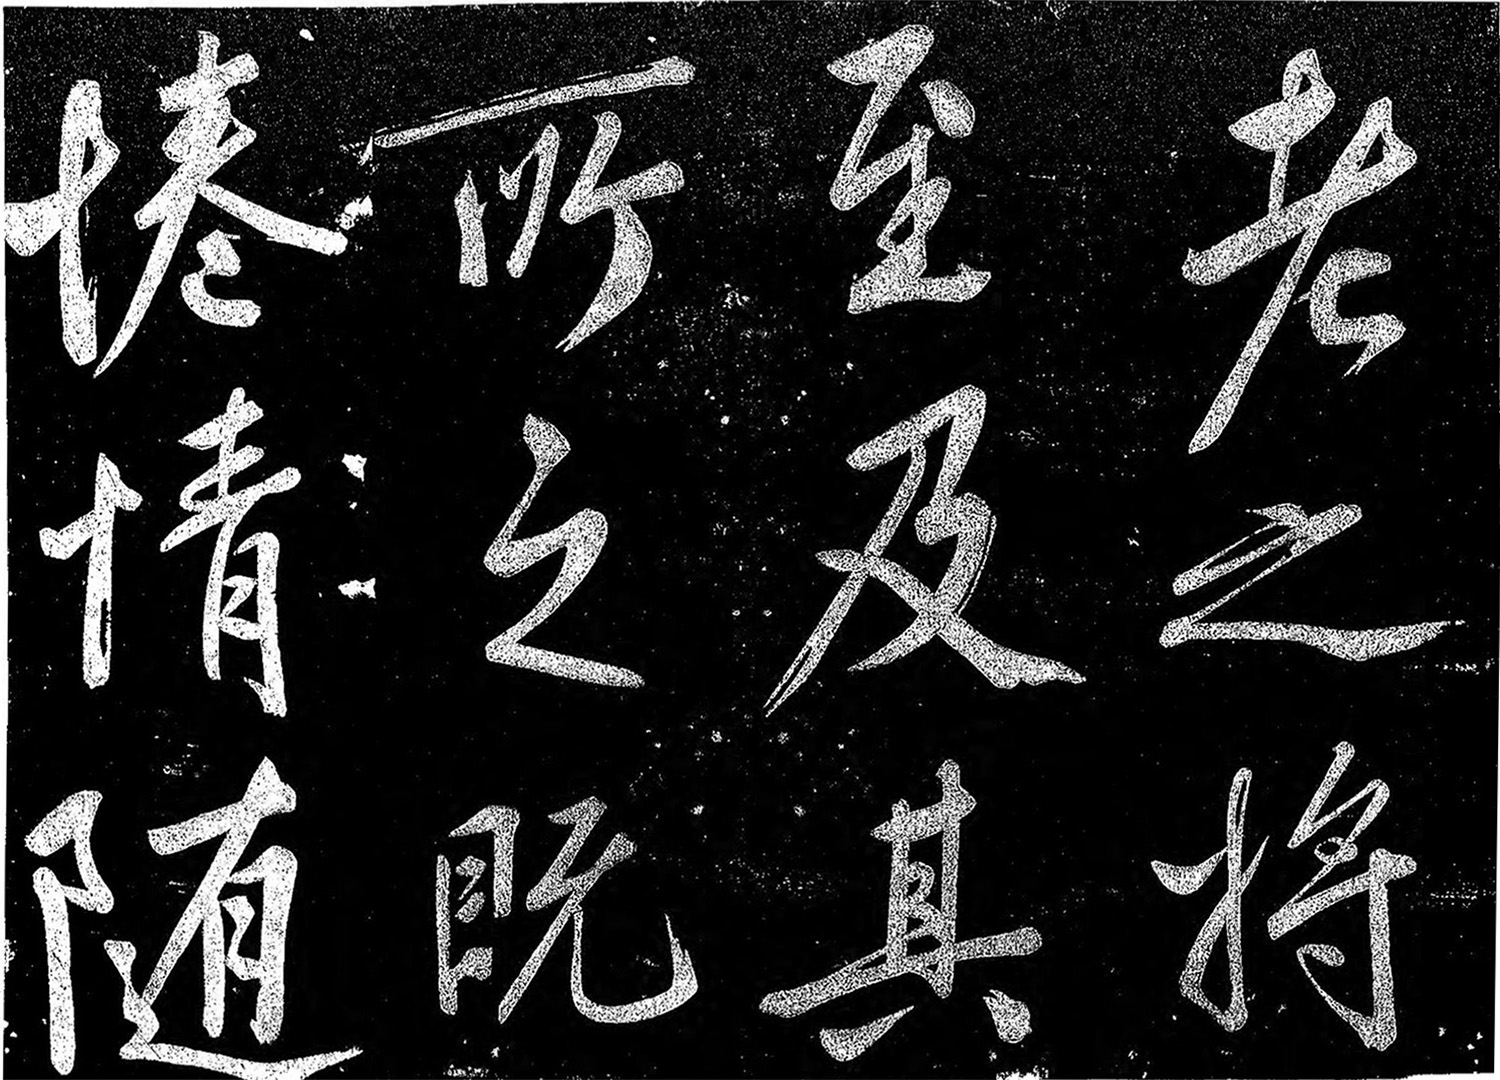 老之將
至及其
所之既
惓情随